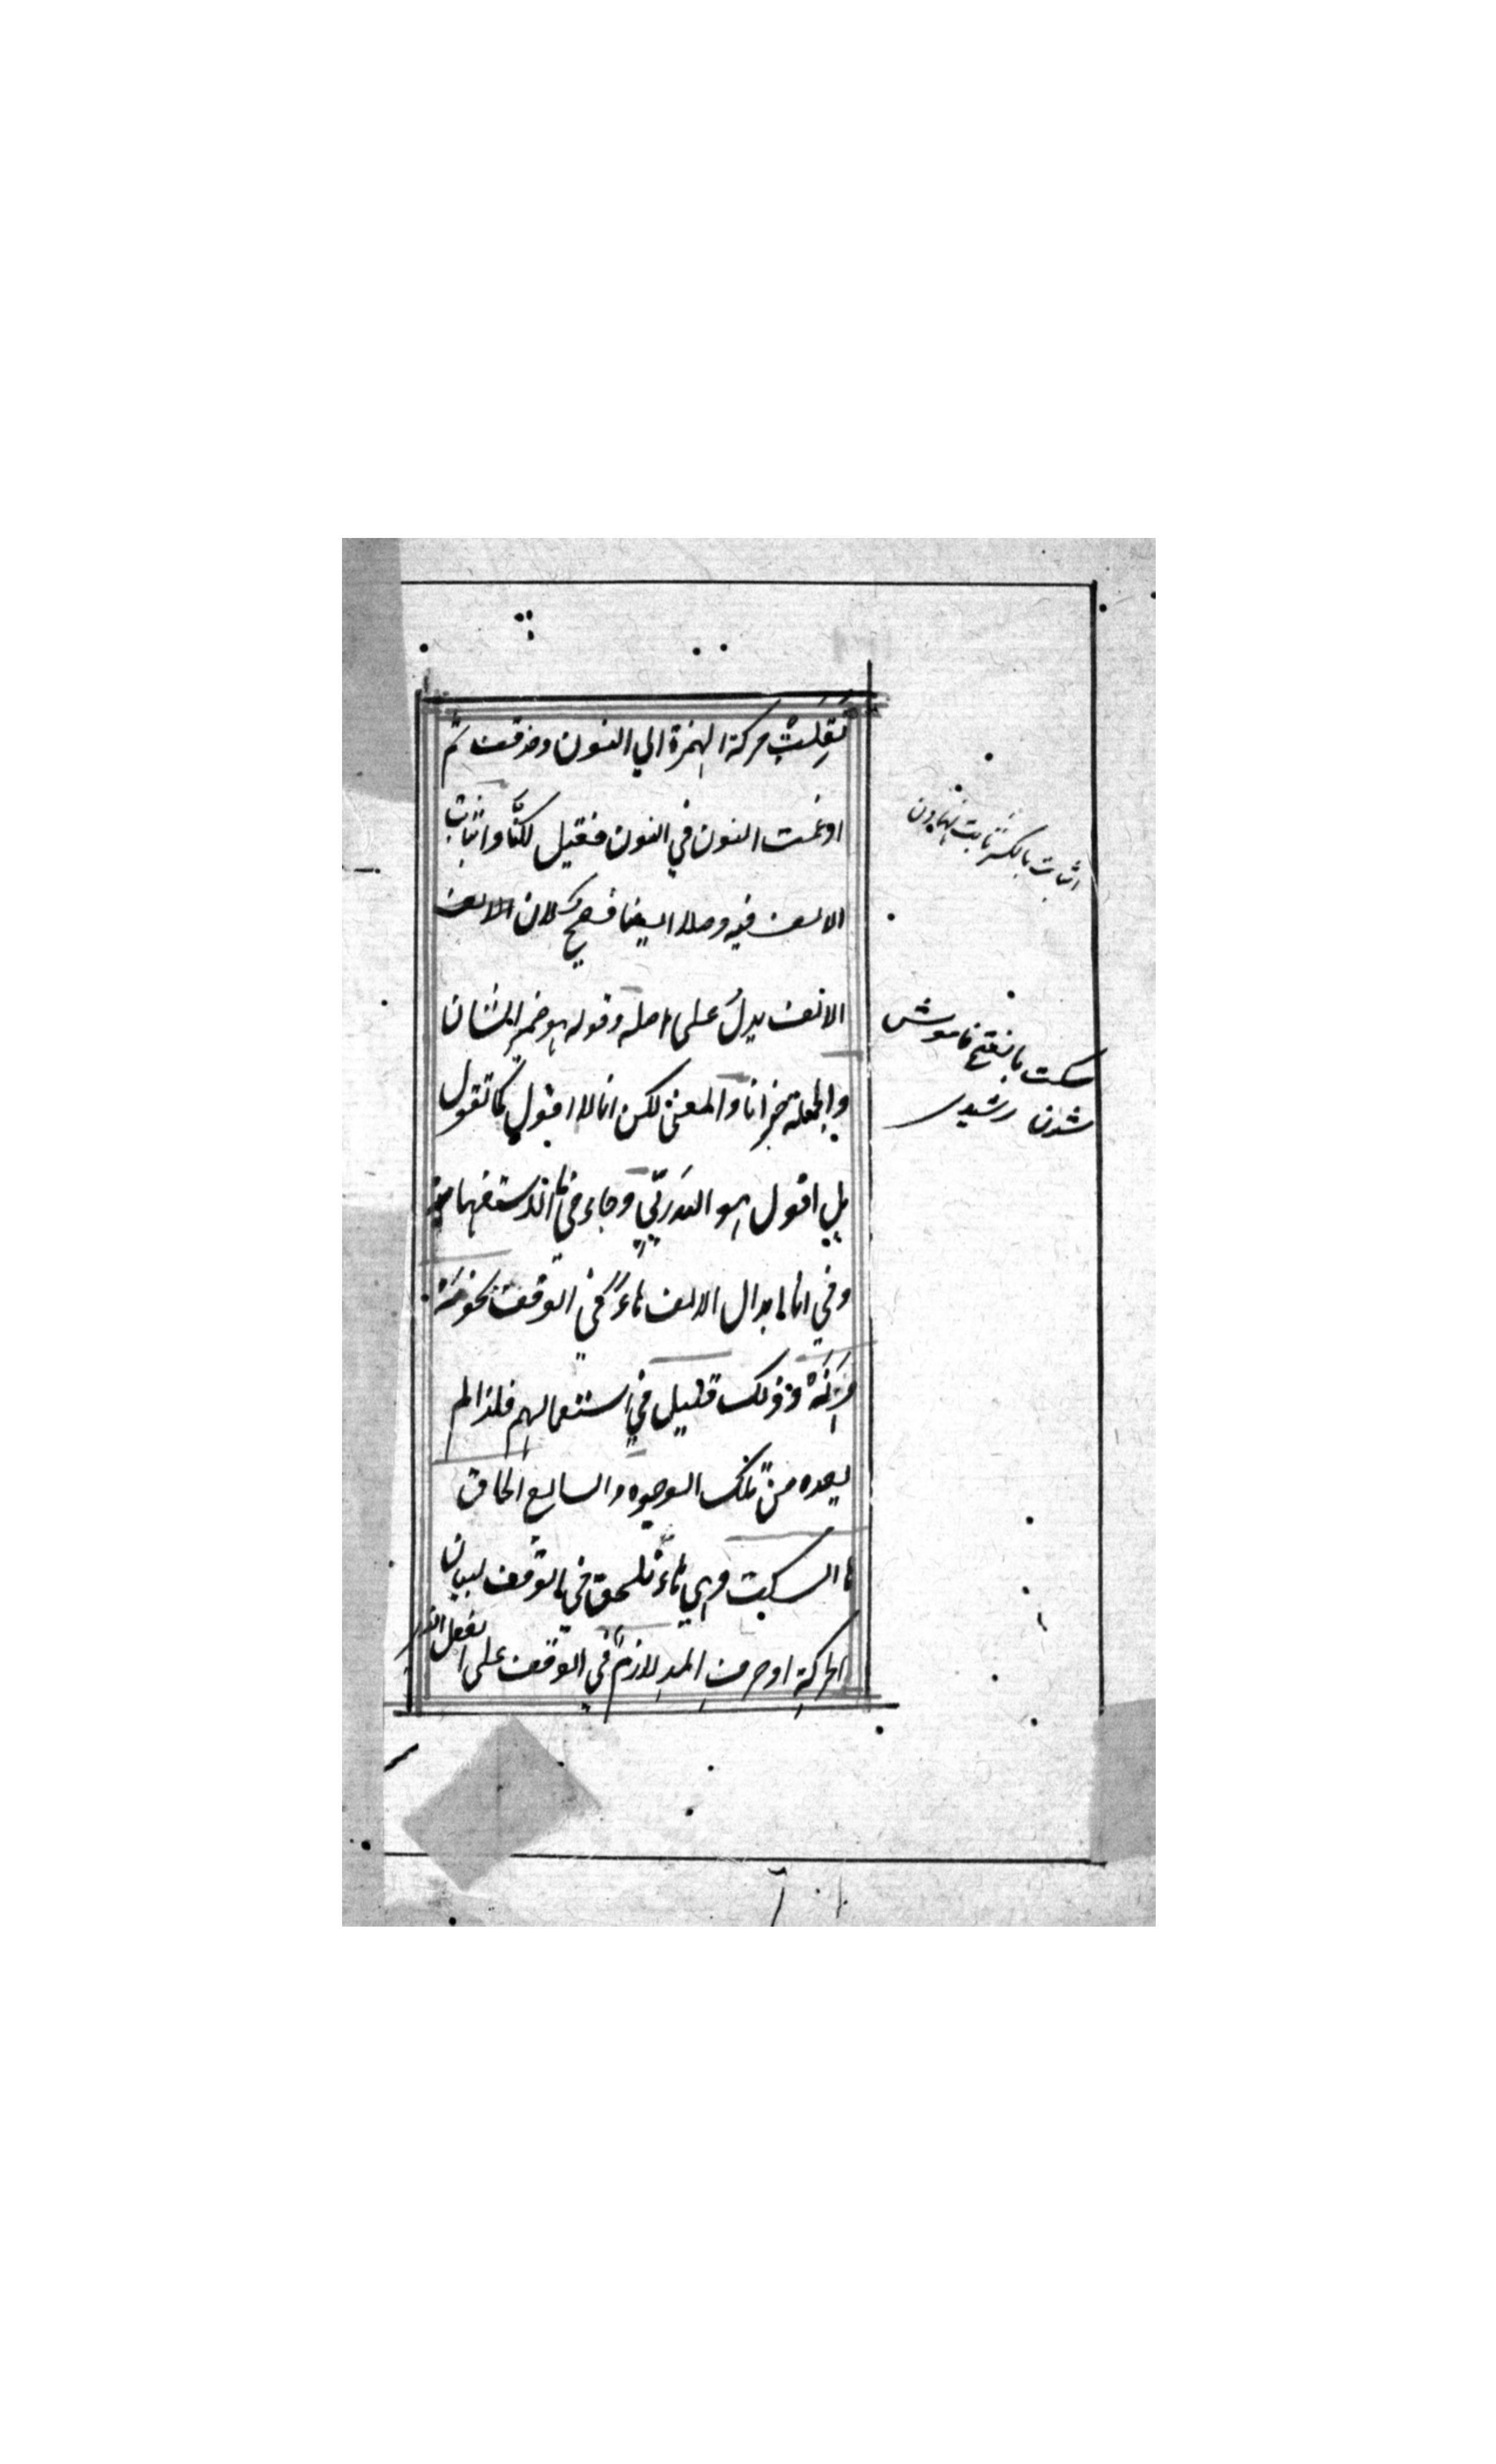 نُقِلَتْ حركة الهمزة الي النون وحذفت ثم
ادغمت النون في النون فقيل لكنّا واثبات
الالف فيه وصلا ايضا فصيح لان الالف
الالف يدلُ على اصله وقوله هو ضمير الشان
والجملة خبر انا والمعنى لكن انا لا اقول كما تقول
بل اقول هو الله رَبّي وجاء في ما الاستفهامية
وفي انا ابدال الالف هاءً في الوقف نحو مَهْ
وَاَنَهْ وذلك قليل في استعمالهم فلذا لم
يعده من تلك الوجوه والسابع الحاق
ها السكت وهي هاء تلحق في الوقف لبيان
الحركة او حرف المد اللازم في الوقف على الفعل الذي
اثبات بالكسر ثابت
سكت بالفتح خاموش
شدن رشيدي